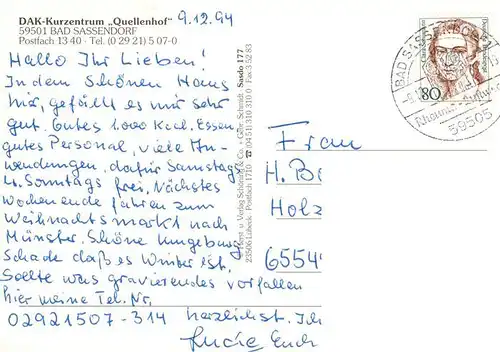 DAK-Kurzentrum „Quellenhof"
59501 BAD SASSENDORF
Postfach 13 40 - Tel. (0 29 21) 5 07-0
9.12.94
Hallo Ihr Lieben!
In dem schönen Haus
hier, gefällt es mir sehr
gut. Gutes 1.000 Kcal. Essen,
gutes Personal, viele An-
wendungen, dafür Samstags
u. Sonntags frei. Nächstes
Wochenende fahren zum
Weihnachtsmarkt nach
Münster. Schöne Umgebung
Schade daß es Winter ist.
Sollte was gravierendes vorfallen
hier meine Tel. Nr.
02921507-314 herzlichst. Ich
Euch
© Horst u. Verlag Schöning & Co. + Gebr. Schmidt
23506 Lübeck, Postfach 1710 ☎ (04 51) 310 310 Fax 3 52 83
Sasdo 177
BAD SASSENDORF
59505
80
Frau
H. Be
Holz
6554